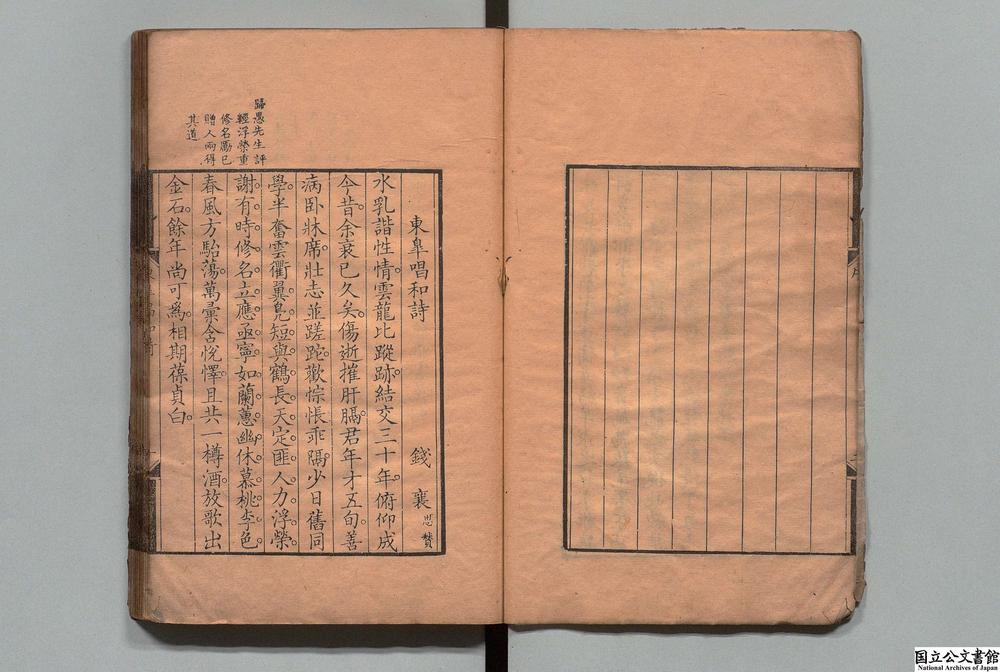 東臯唱和詩
錢襄思贊
水乳諧性情雲龍比蹤跡結交三十年俯仰成
今昔余衰已久矣傷逝摧肝膈君年才五旬善
病卧牀席壯志並蹉跎歡悰悵乖隔少日舊同
學半奮雲衢翼鳧短與鶴長天定匪人力浮榮
謝有時修名立應亟寧如蘭蕙幽休慕桃李色
春風方駘蕩萬彙含悅懌且共一樽酒放歌出
金石餘年尚可爲相期葆貞白
歸愚先生評
輕浮榮重
修名勵已
贈人兩得
其道
国立公文書館
National Archives of Japan